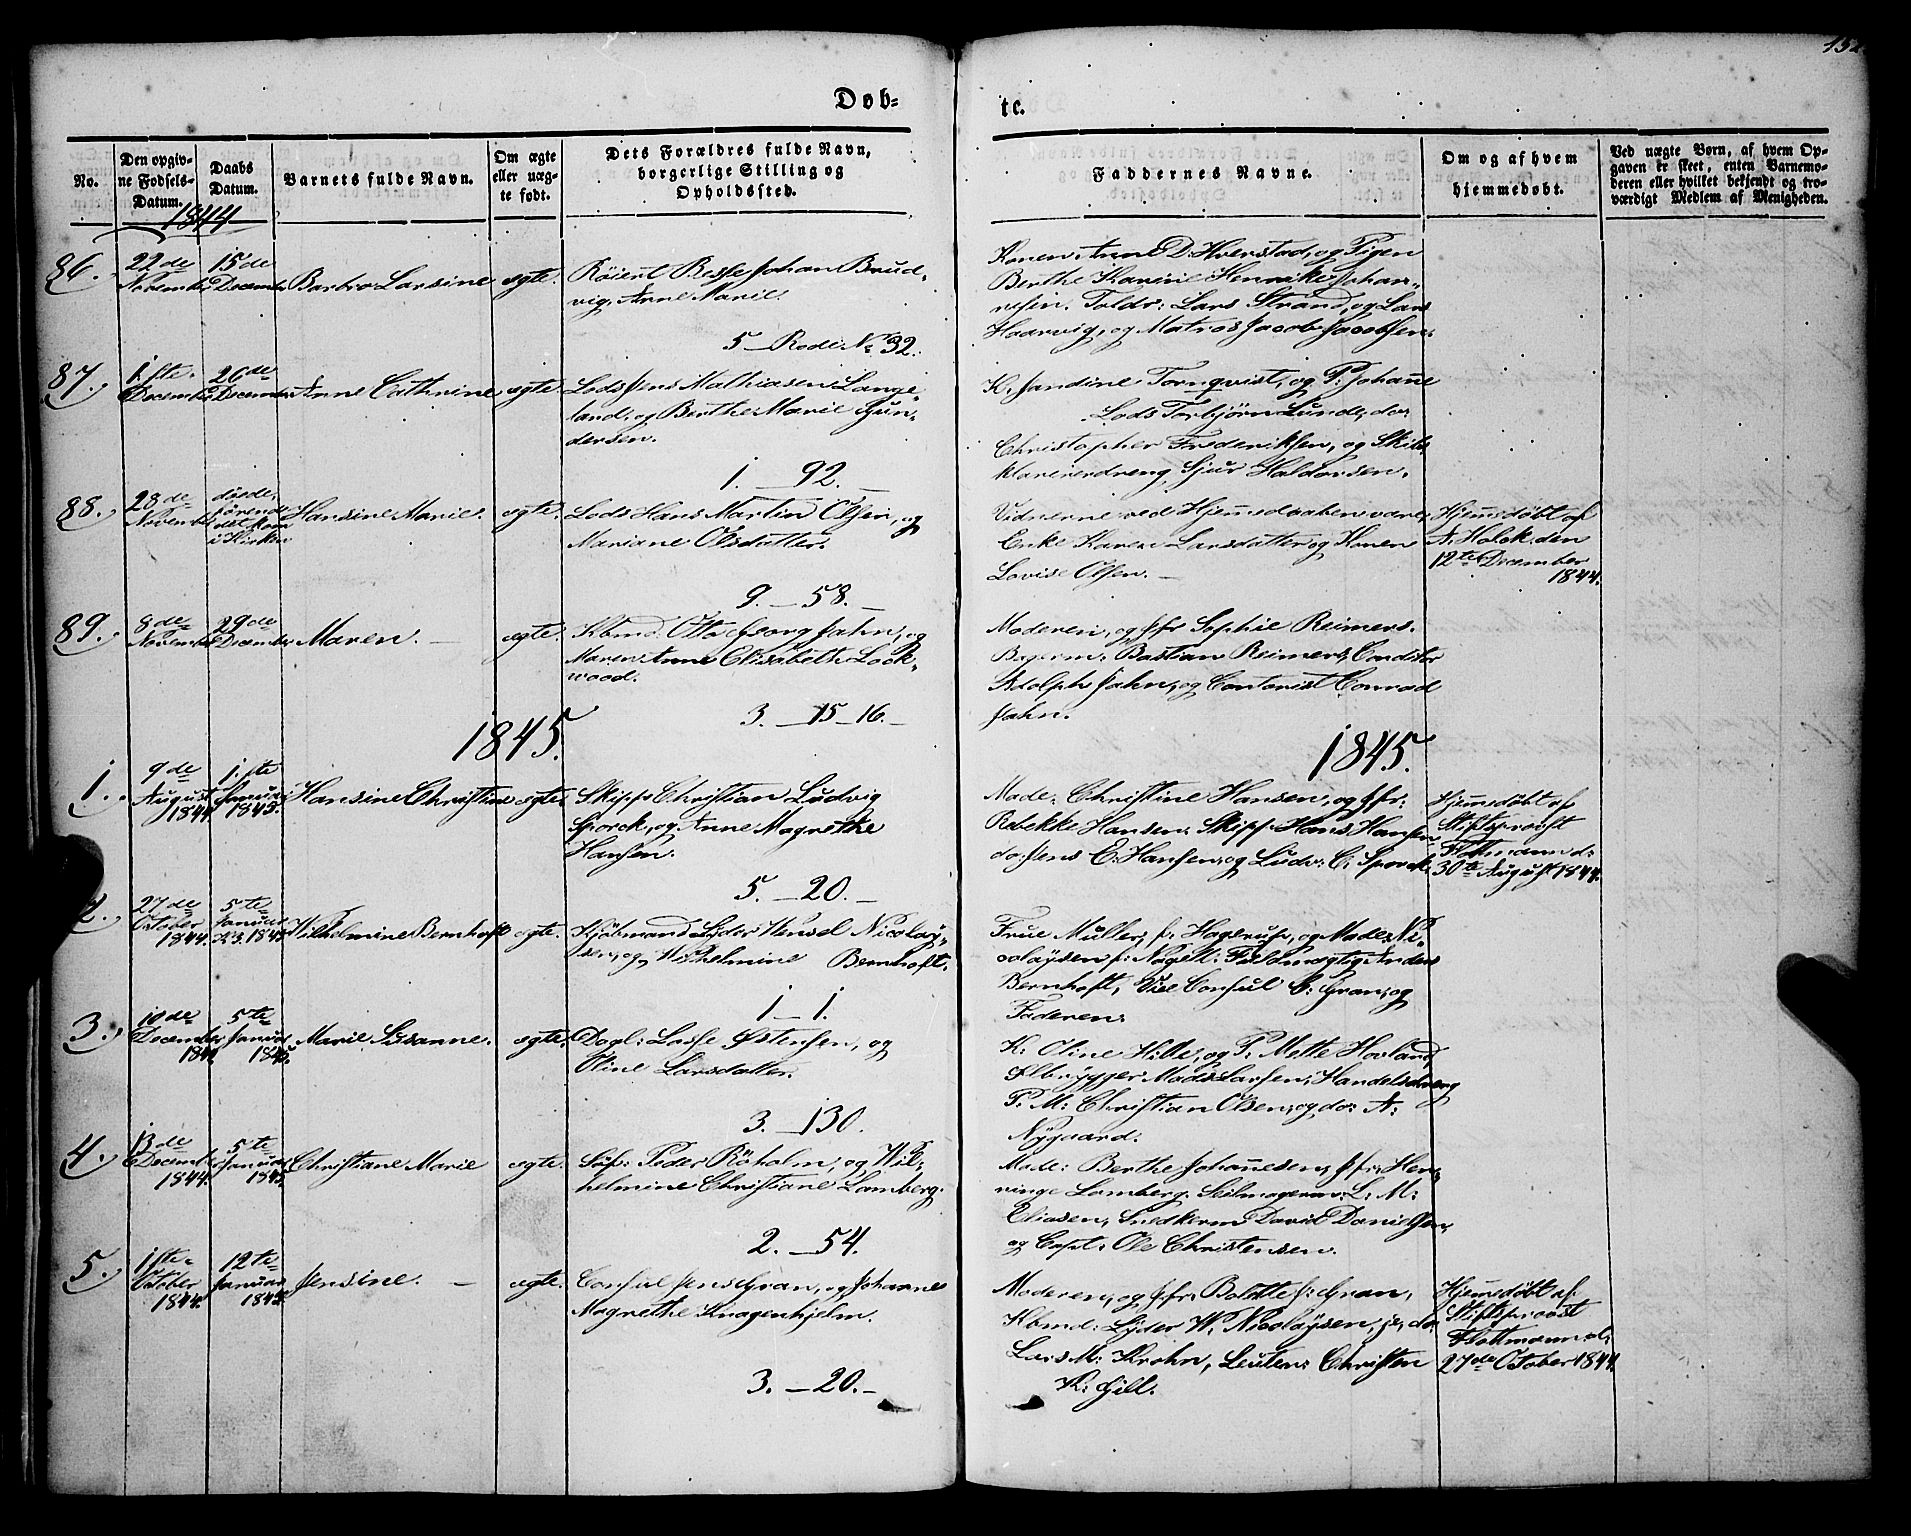 152
Døb-
te.
No.
Den opgiv-
ne Fødsels-
Datum.
Daabs
Datum.
Barnets fulde Navn.
Om ægte
eller uæg-
te født.
Dets Forældres fulde Navn,
borgerlige Stilling og
Opholdssted.
Faddernes Navne.
Om og af hvem
hjemmedøbt.
Ved uægte Børn, af hvem Op-
gaven er skeet, enten Barnemo-
deren eller hvilket bekjendt og tro-
værdigt Medlem af Menigheden.
1844
86.
22de
November
15de
December
Barbro Larsine
ægte.
Røiert Besse Johan Brud-
vig, Anne Marie.
5 - Rode No 32.
Konen Anne D: Hverstad, og Pigen
Berthe Karine Henrikke Johan-
nesen. Toldr: Lars Strand, og Lars
Haarvig, og Matros Jacob Jacobsen.
87.
1ste
December
26de
December
Anne Cathrine
ægte.
Lods Jens Mathiasen Lange-
land, og Berthe Marie Gun-
dersen.
1. - 92. -
K. Jandine Tornqvist, og P: Johanne
Lods Torbjørn Lunde, do:
Christopher Frederiksen, og Skibs
klarererdreng Sjur Haldorsen.
88.
28de
November
døede,
førend
det kom
i Kirken
Hansine Marie.
ægte.
Lods Hans Martin Olsen, og
Mariane Olsdatter.
9. - 58. -
Vidnerne ved Hjemmedaaben vare,
Enke Karen Larsdatter og Konen
Lovise Olsen. -
Hjemmedøbt af
A. Holck den
12te December
1844.
89.
8de
November
29de
December
Maren. -
ægte.
Kbmd. Otto Georg Jahn, og
Maren Anne Elisabeth Lock-
wood.
3. - 15 - 16. -
Moderen, og Jfr Sophie Reimers.
Bagerm: Bastian Reimers, Conditor
Adolph Jahn, og Contorist Conrad
Jahn.
1845.
1845.
1.
9de
August
1844.
1.ste
Januar
1845.
Hansine Christine
ægte.
Skipp: Christian Ludvig
Sporck, og Anne Magrethe
Hansen.
5. - 20. -
Made: Christine Hansen, og Jfr:
Rebekke Hansen. Skipp: Hans Hansen
do: Jens C: Hansen, og Ludv: C: Sporck.
Hjemmedøbt af
Stiftsprovst
Flottmann d:
30te August 1844.
2.
27de
October
1844.
5te
Januar
1845
Wilhelmine Bernhoft
ægte.
Kjøbmand Lyder Wensel Nicolay-
sen, og Wilhelmine Bernhoft.
1 - 1.
Frue Müller, f: Hagerup, og Made: Ni-
colaysen f: Nagell. Fuldmægtig Anders
Bernhoft, Vice Consul C: Gran, og
Faderen.
3.
10de
December
1844
5te
Januar
1845.
Marie Susanne.
ægte.
Dagl: Lasse Østensen, og
Oline Larsdatter.
3. - 130.
K: Oline Hille, og P: Mette Hovland,
Ølbrygger Mads Larsen, Handelsdreng
P. M: Christian Olsen, og do: A:
Nygaard.
4.
13de
Decemb
1844.
5te
Januar
1845.
Christiane Marie
ægte.
Søf: Peder Röholm, og Wil-
helmine Christiane Lamberg.
2. - 54.
Made: Berthe Johannesen, Jfr: Hen-
ringe Lamberg. Seilmagersv: L: M:
Eliasen, Snedkerm David Danielsen,
og Capt: Ole Christensen.
5.
1ste
October
1844.
12te
Januar
1845.
Jensine. -
ægte.
Consul Jens Gran, og Johanne
Magrethe Knagenhjelm.
3. - 20. -
Moderen, og Jfr: Bolette f: Gran,
Kbmd: Lyder W. Nicolaysen, jr, do
Lars M: Krohn, Leuten: Christen
K: Gill.
Hjemmedøbt af
Stiftsprovst
Flottmann d:
27de October 1844.